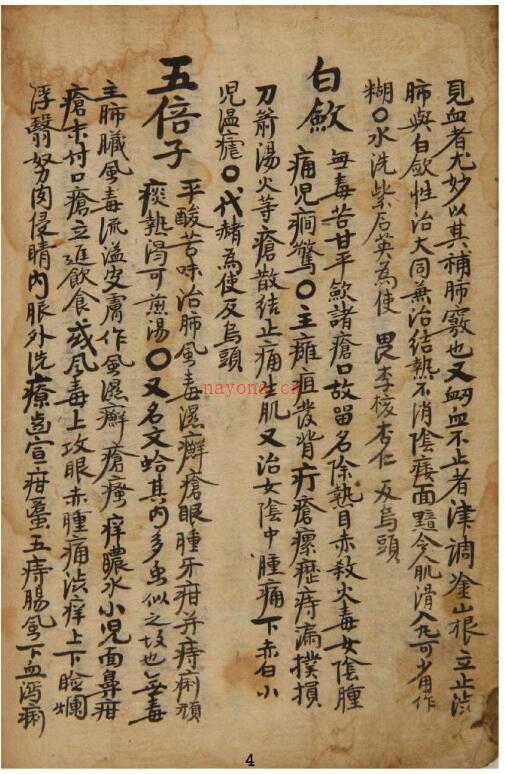 見血者尤妙以其補肺竅也又衂血不止者津調塗山根立止澁
肺與白歛性治大同兼治結熱不消陰痿面䵟令人肌滑入丸可為作
糊〇水洗紫石英為使 畏李核杏仁 反烏頭
白歛
無毒苦甘平歛諸瘡口故留名除熱目赤殺火毒女陰腫
痛児癎驚〇主癰疽發背疔瘡瘰癧痔漏撲損
刀箭湯火等瘡散結止痛生肌又治女陰中腫痛下赤白小
児温瘧〇代赭為使反烏頭
五倍子
平酸苦味治肺風毒濕癬瘡眼腫牙疳并痔痢頑
痰熱渴可煎湯〇又名文蛤其内多虫似之故也無毒
主肺臟風毒流溢皮膚作風濕癬瘡瘙痒膿水小児面鼻疳
瘡末付口瘡立進飲食或風毒上攻眼赤腫痛澁痒上下瞼爛
浮翳努肉侵睛内服外洗療齒宣疳䘌五痔腸風下血瀉痢
nayona.cn
4